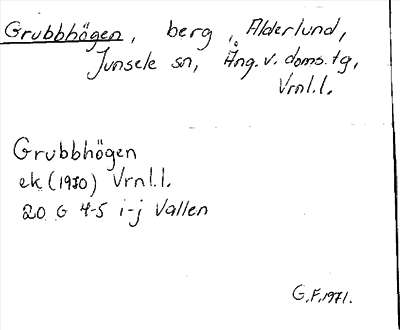 Grubbhögen, berg, Alderlund,
Junsele sn, Ång. v. doms. tg,
Vrnl.l.
Grubbhögen
ek (1970) Vrnl.l.
20 G 4-5 i-j Vallen
G.F. 1971.